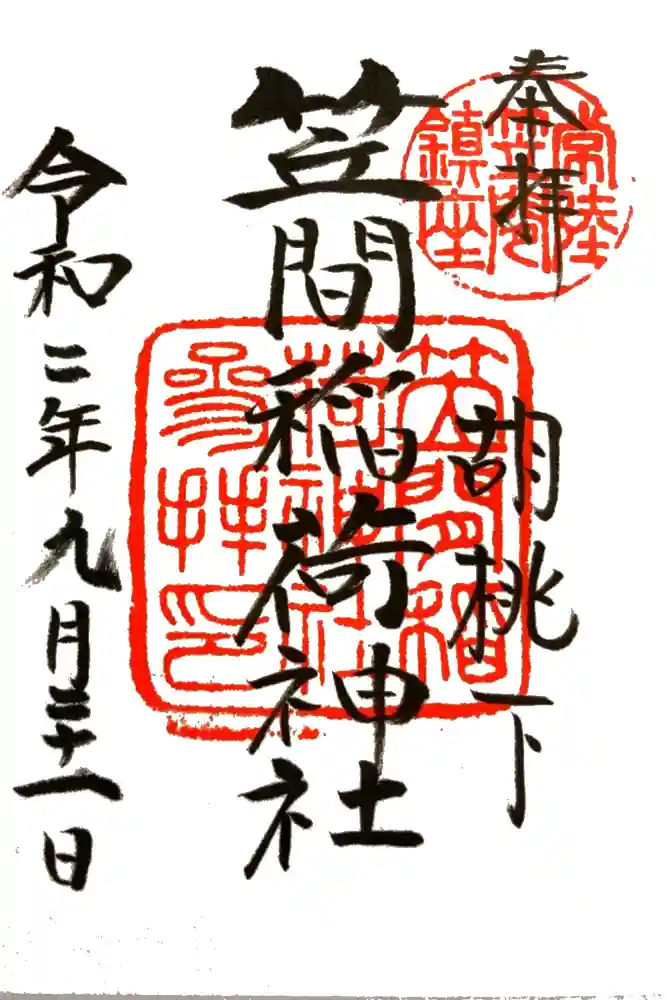 奉拝
常陸
笠間
鎮座
胡桃下
笠間稲荷神社
笠間稲
荷神社
参拝印
令和二年九月二十一日